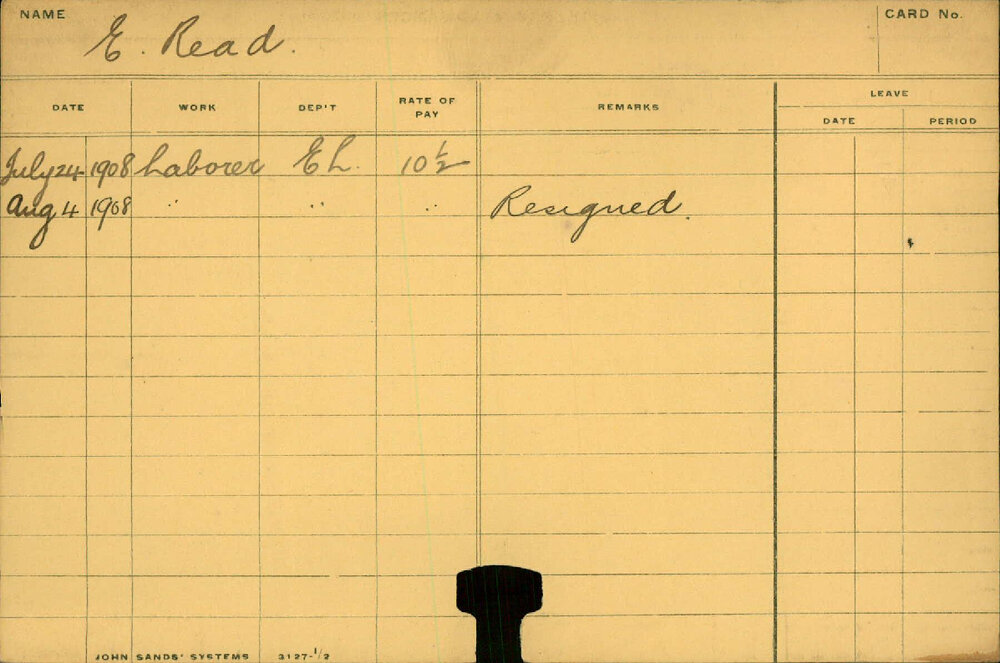 NAME E. Read. CARD No.
DATE WORK DEP'T RATE OF PAY REMARKS LEAVE
DATE PERIOD
July 24 1908 Laborer EL. 10 1/2
Aug 4 1908 " " " Resigned.
JOHN SANDS' SYSTEMS 3127-1/2